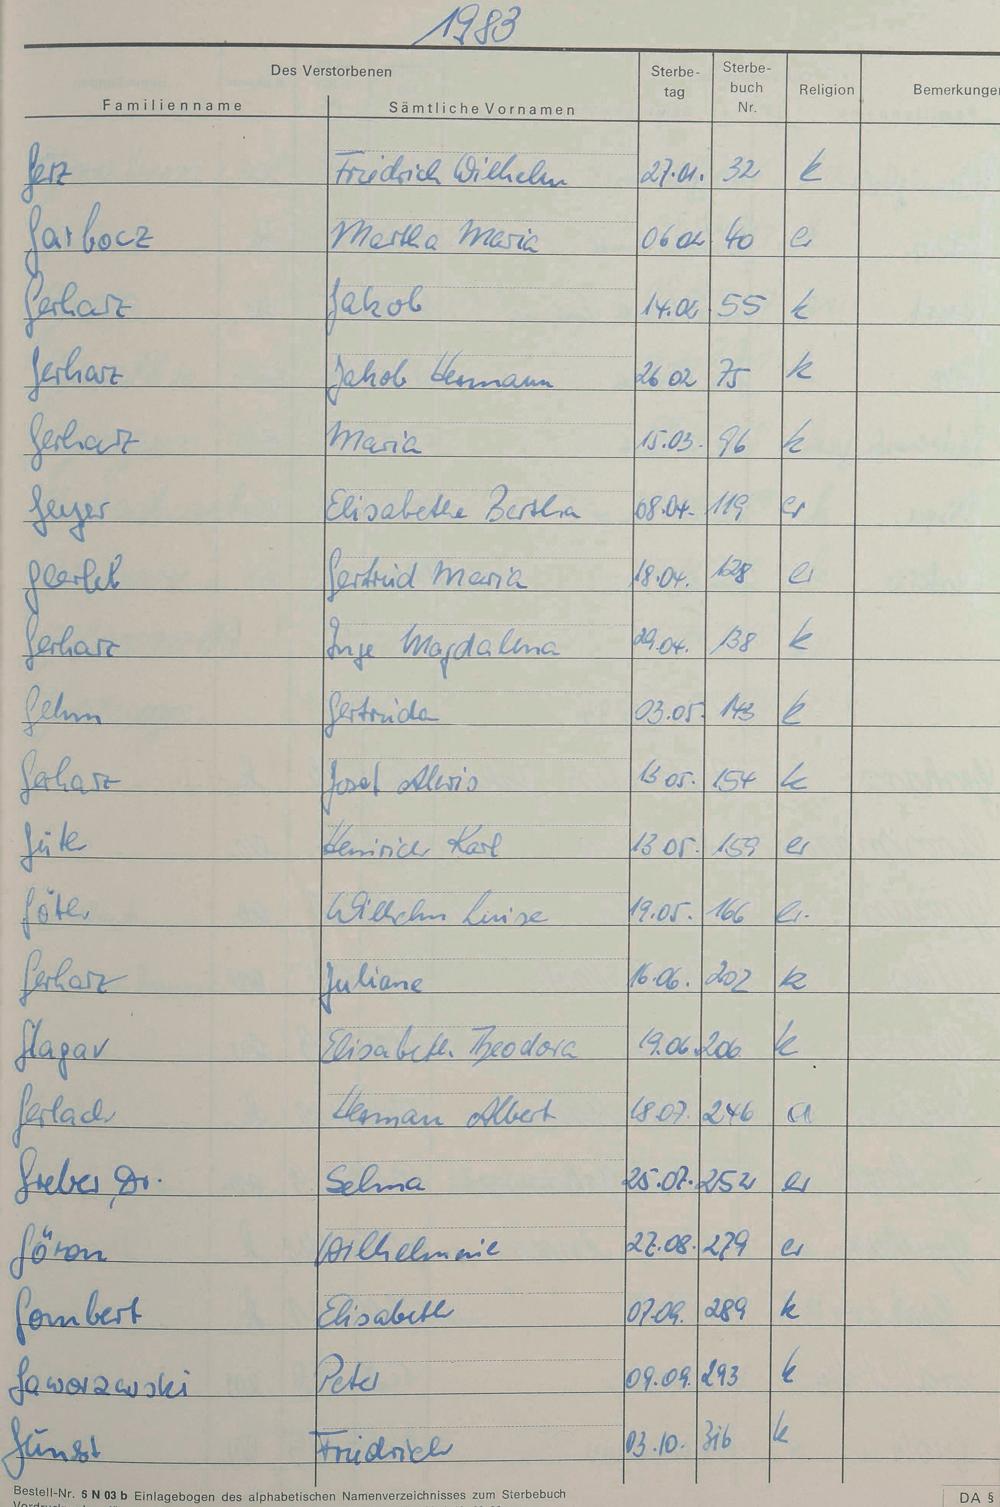 1983
Des Verstorbenen Sterbe- Sterbe-
tag buch Religion Bemerkungen
Familienname Sämtliche Vornamen Nr.
Gerz Friedrich Wilhelm 27.01. 32 k
Garbocz Martha Maria 06 02 40 ev
Gerharz Jakob 14.02 55 k
Gerharz Jakob Hermann 26 02 75 k
Gerharz Maria 15.03. 96 k
Geyer Elisabetha Bertha 08.04. 119 ev
Gertrud Maria 18.04. 128 ev
Gerharz Inge Magdalena 29.04. 138 k
Gehm Gertruda 03.05. 143 k
Gerharz Josef Alois 13 05. 154 k
Heinrich Karl 13 05. 159 ev
Wilhelm Luise 19.05. 166 ev.
Gerharz Juliane 16.06. 202 k
Elisabeth Theodora 19.06. 206 k
Gerlach Herman Albert 18.07. 246
Greber, Dr. Selma 25.07. 252 ev
Göran Wilhelmine 27.08. 279 ev
Gombert Elisabeth 07.09. 289 k
Gaworzewski Peter 09.09. 293 k
Günst Friedrich 03.10. 316 k
Bestell-Nr. 5 N 03 b Einlagebogen des alphabetischen Namenverzeichnisses zum Sterbebuch
DA 5